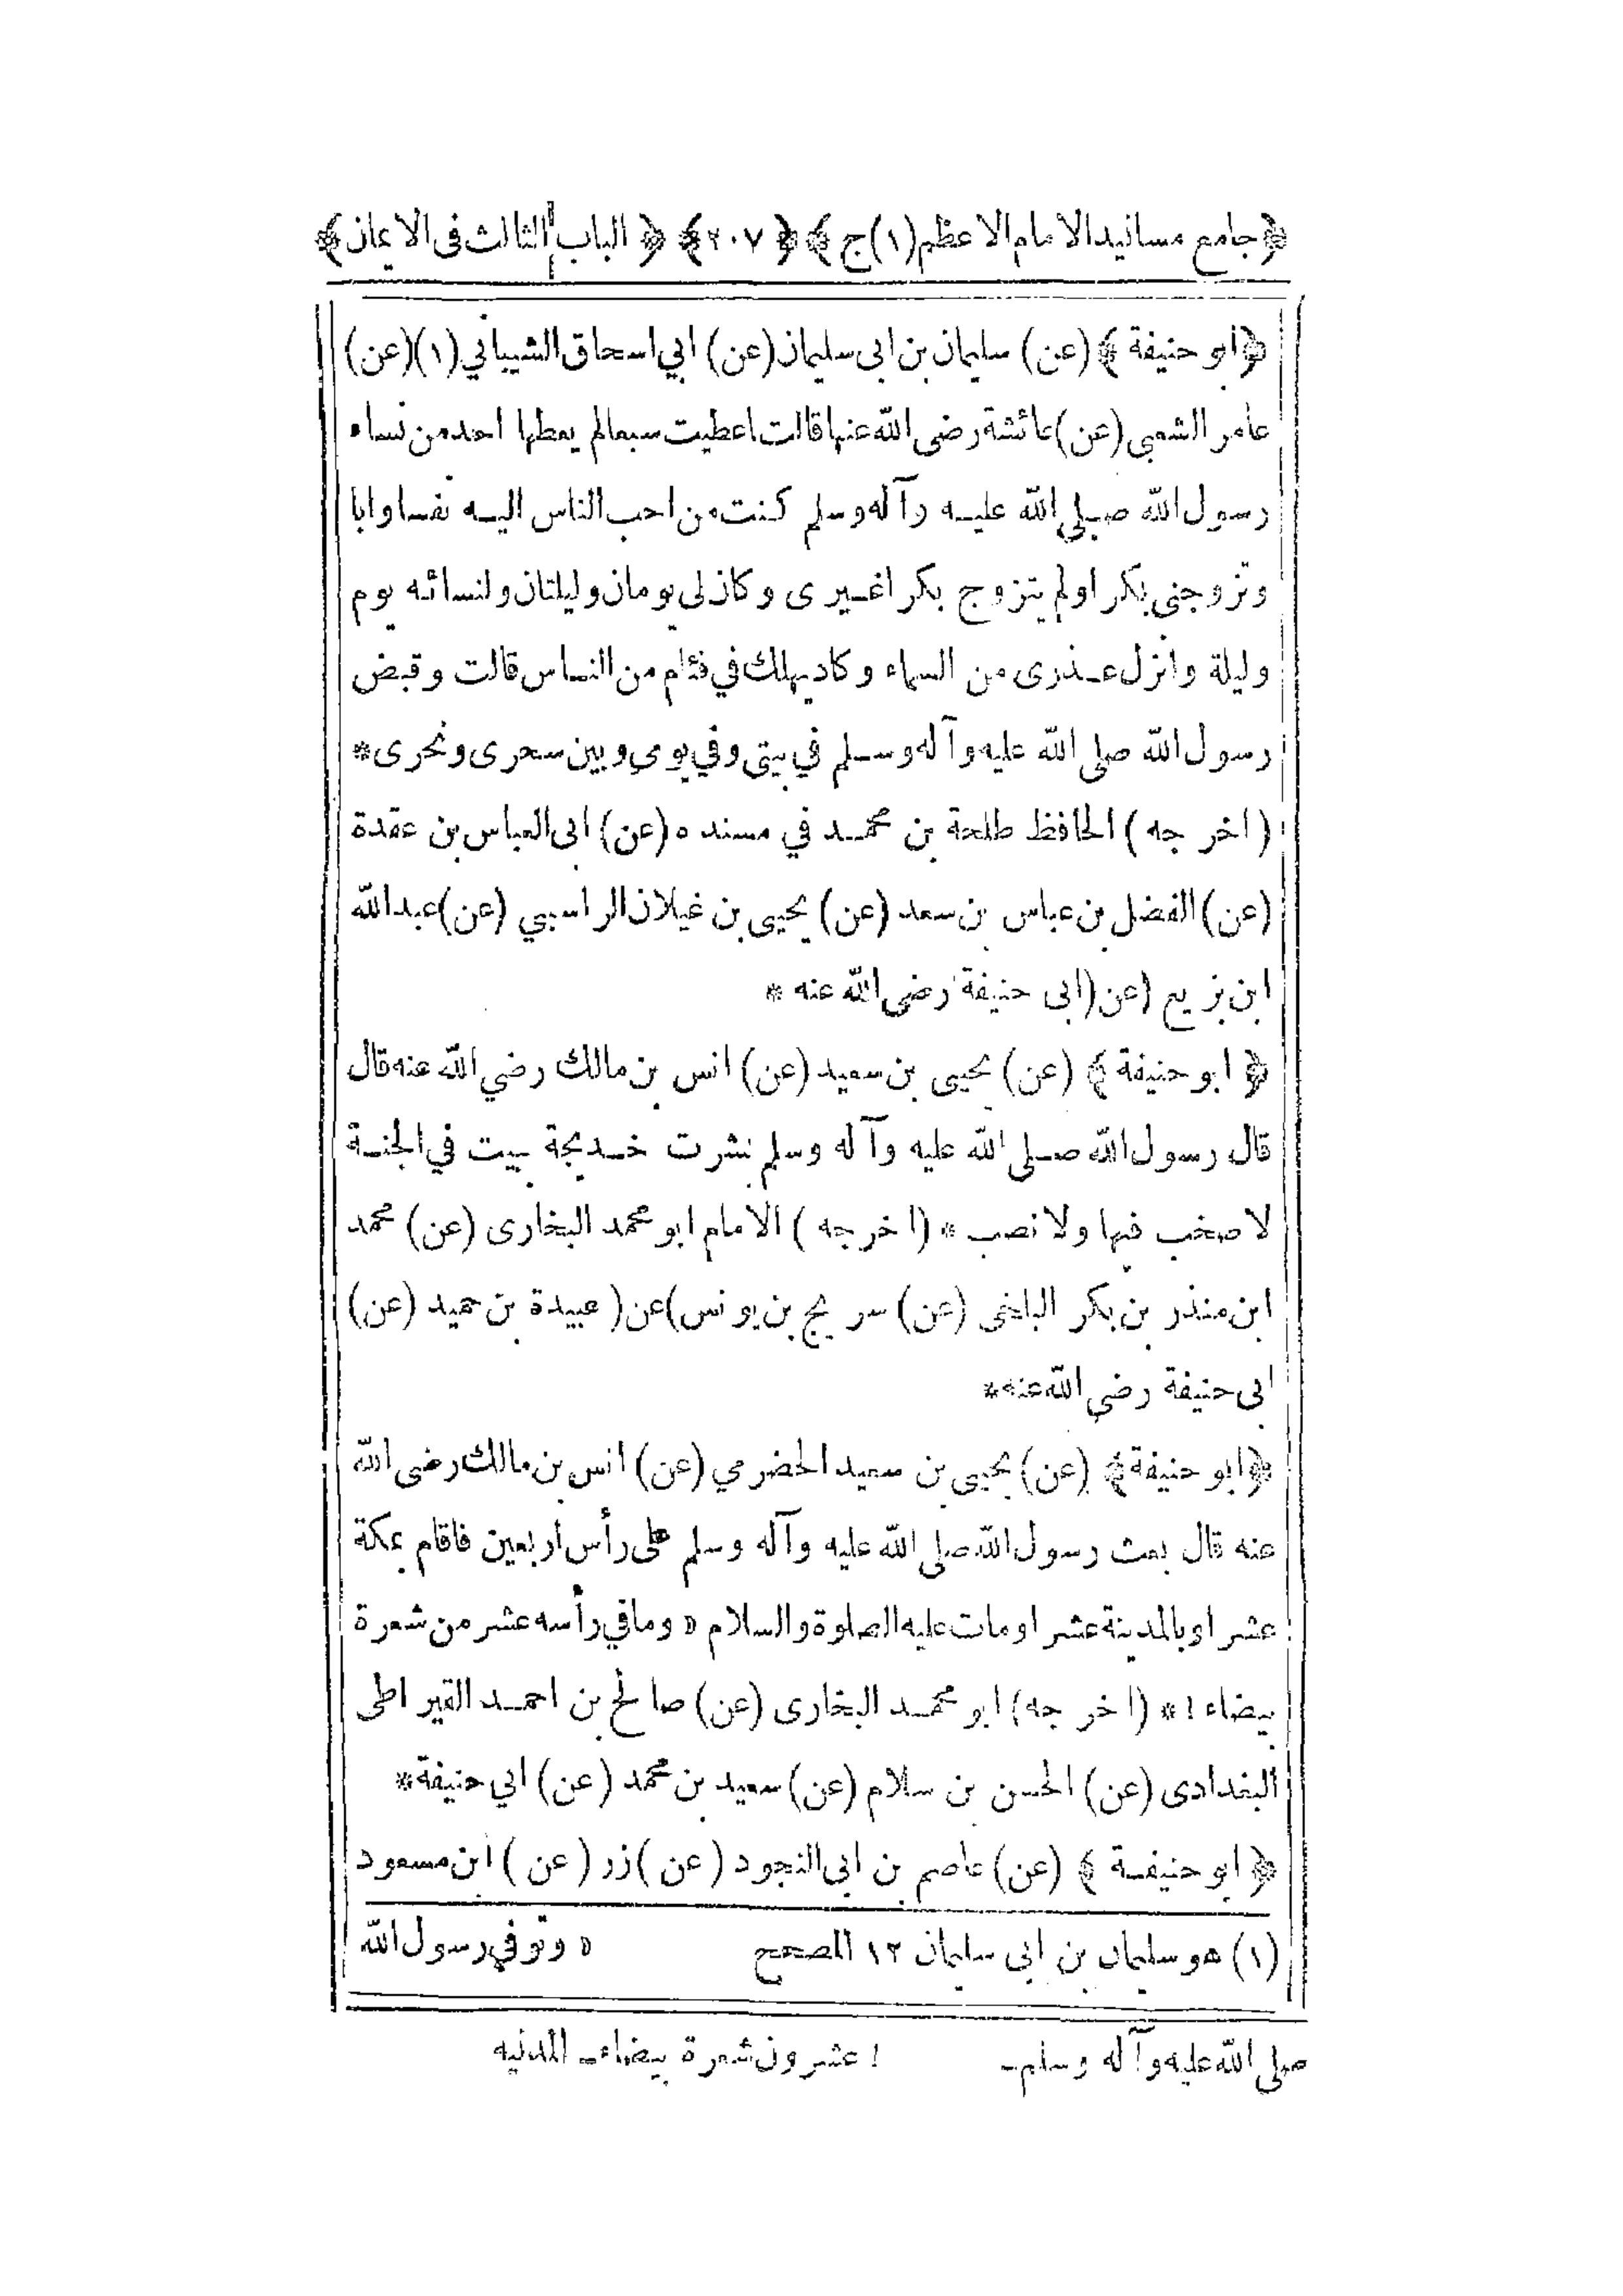 ﴿جامع مسانيد الامام الاعظم(١)ج﴾ ﴿٢٠٧﴾ ﴿الباب الثالث فى الايمان﴾
﴿ابو حنيفة﴾ (عن) سليمان بن ابى سليمان (عن) ابي اسحاق الشيباني (١)(عن)
عامر الشعبى (عن) عائشة رضى الله عنها قالت اعطيت سبعا لم يعطها احد من نساء
رسول الله صلى الله عليه وآله وسلم كنت من احب الناس اليه نفسا وابا
وتزوجنى بكرا ولم يتزوج بكرا غيرى وكان لى يومان وليلتان ولنسائه يوم
وليلة وانزل عذرى من السماء وكاد يهلك في فئام من الناس قالت وقبض
رسول الله صلى الله عليه وآله وسلم في بيتى وفي يومى وبين سحرى ونحرى *
(اخرجه) الحافظ طلحة بن محمد في مسنده (عن) ابى العباس بن عقدة
(عن) الفضل بن عباس بن سعد (عن) يحيى بن غيلان الراسبي (عن) عبدالله
ابن بزيع (عن( ابى حنيفة رضى الله عنه *
﴿ابو حنيفة﴾ (عن) يحيى بن سعيد (عن) انس بن مالك رضي الله عنه قال
قال رسول الله صلى الله عليه وآله وسلم بشرت خديجة ببيت في الجنة
لا صخب فيها ولا نصب * (اخرجه) الامام ابو محمد البخارى (عن) محمد
ابن منذر بن بكر البلخى (عن) سريج بن يونس)عن( عبيدة بن حميد (عن)
ابى حنيفة رضى الله عنه *
﴿ابو حنيفة﴾ (عن) يحيى بن سعيد الحضرمي (عن) انس بن مالك رضى الله
عنه قال بعث رسول الله صلى الله عليه وآله وسلم على رأس أربعين فاقام بمكة
عشرا وبالمدينة عشرا ومات عليه الصلوة والسلام ٥ وما في رأسه عشر من شعرة
بيضاء ! * (اخرجه) ابو محمد البخارى (عن) صالح بن احمد القيراطى
البغدادى (عن) الحسن بن سلام (عن) سعيد بن محمد (عن) ابي حنيفة *
﴿ابو حنيفة﴾ (عن) عاصم بن ابى النجود (عن) زر (عن) ابن مسعود
(١) هو سليمان بن ابى سليمان ١٢ المصحح ٥ وتوفي رسول الله
صلى الله عليه وآله وسلم- ! عشرون شعرة بيضاء- المدنيه